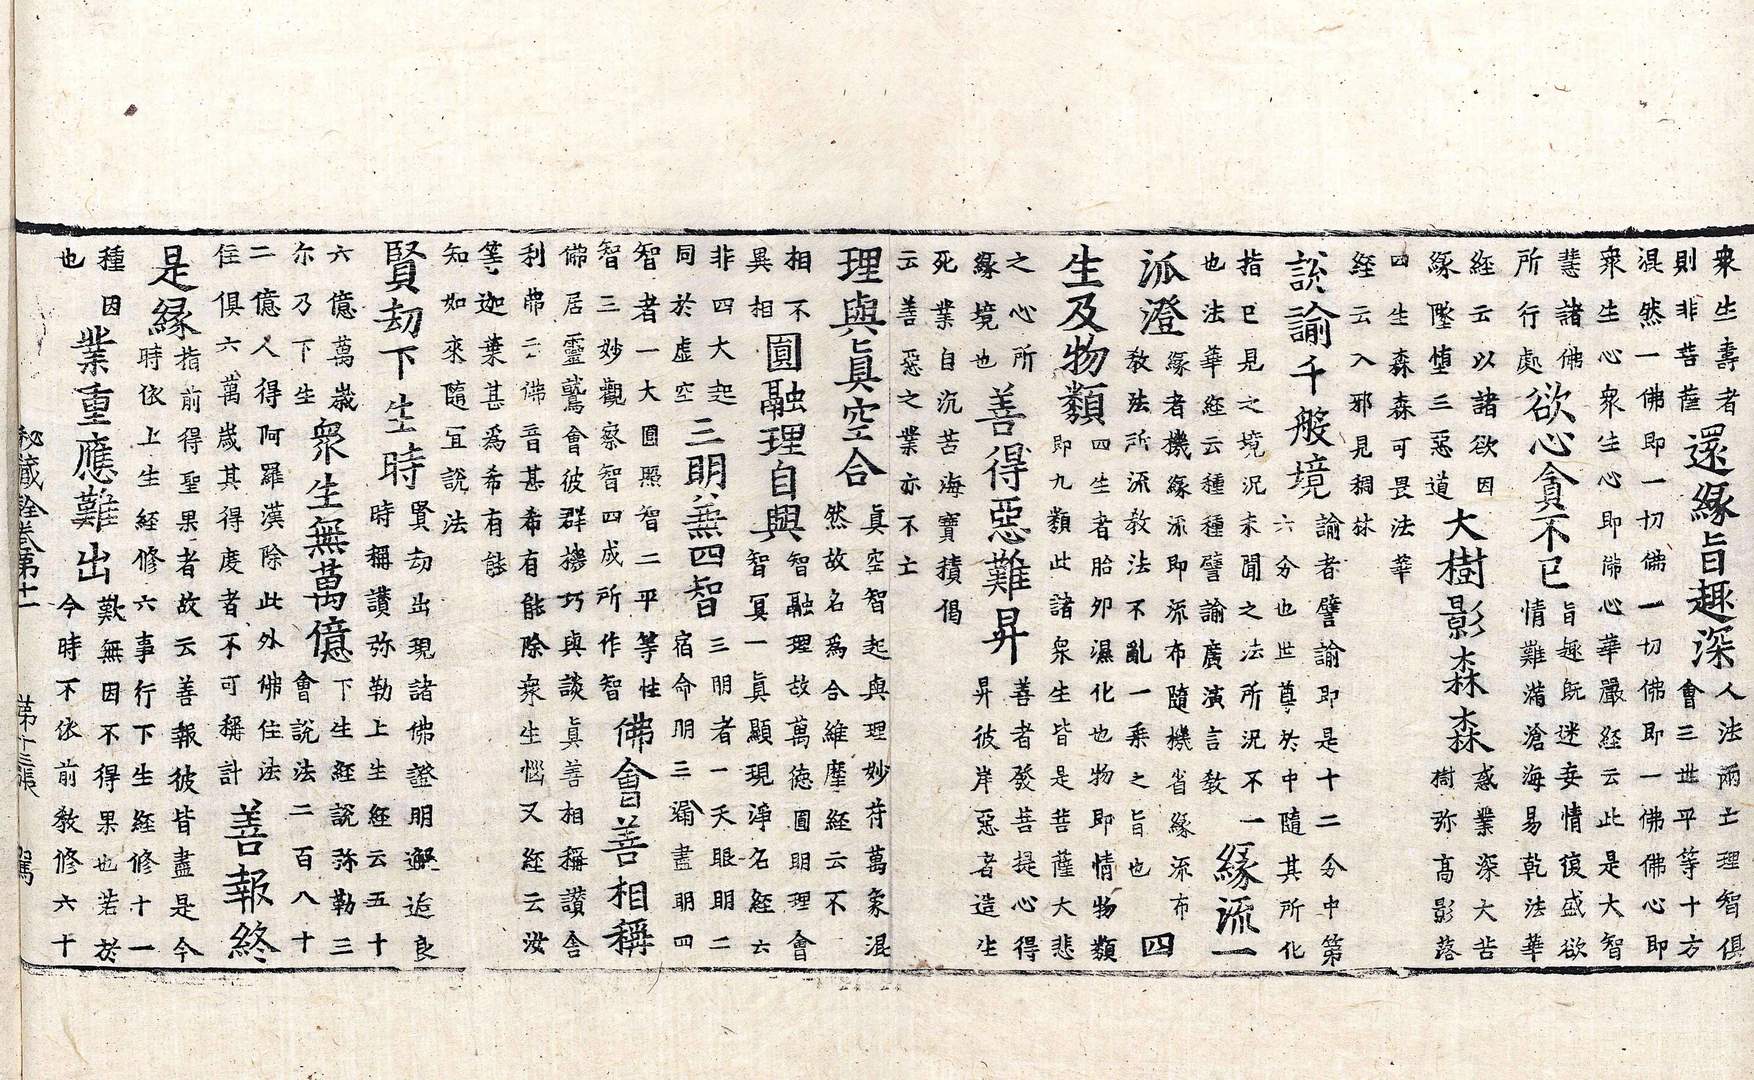 衆生壽者
則非菩薩
還緣旨趣深
人法兩亡理智俱
會三世平等十方
泯然一佛即一切佛一切佛即一佛佛心即
衆生心衆生心即佛心華嚴經云此是大智
慧諸佛
所行處
欲心貪不已
旨趣既迷妄情復盛欲
情難滿滄海易乾法華
經云以諸欲因
緣墜墮三惡道
大樹影森森
惑業深大苦
樹弥高影落
四生森森可畏法華
經云入邪見稠林
説諭千般境
諭者譬諭即是十二分中第
六分也世尊於中隨其所化
指已見之境況未聞之法所況不一
也法華經云種種譬諭廣演言教
緣流一
派澄
緣者機緣流即流布隨機省緣流布
教法所流教法不亂一乘之旨也
四
生及物類
四生者胎卵濕化也物即情物類
即九類此諸衆生皆是菩薩大悲
之心所
緣境也
善得惡難昇
善者發菩提心得
昇彼岸惡者造生
死業自沉苦海寶積偈
云善惡之業亦不亡
理與眞空合
眞空智起與理妙符萬象混
然故名爲合維摩經云不
相不
異相
圓融理自興
智融理故萬德圓明理會
智冥一眞顯現淨名經云
非四大起
同於虛空
三明兼四智
三明者一天眼明二
宿命明三漏盡明四
智者一大圓照智二平等性
智三妙觀察智四成所作智
佛會善相稱
佛居靈鷲會彼群機巧與談眞善相稱讚舍
利弗云佛音甚希有能除衆生惱又經云汝
等迦葉甚爲希有能
知如來隨宜説法
賢劫下生時
賢劫出現諸佛證明邂逅良
時稱讚弥勒上生經云五十
六億萬歲
尔乃下生
衆生無萬億
下生經説弥勒三
會説法二百八十
二億人得阿羅漢除此外佛住法
住俱六萬歲其得度者不可稱計
善報終
是緣
指前得聖果者故云善報彼皆盡是今
時依上生經修六事行下生經修十一
種因
也
業重應難出
歎無因不得果也若於
今時不依前教修六十
秘藏詮卷第十一 第十三張 駕